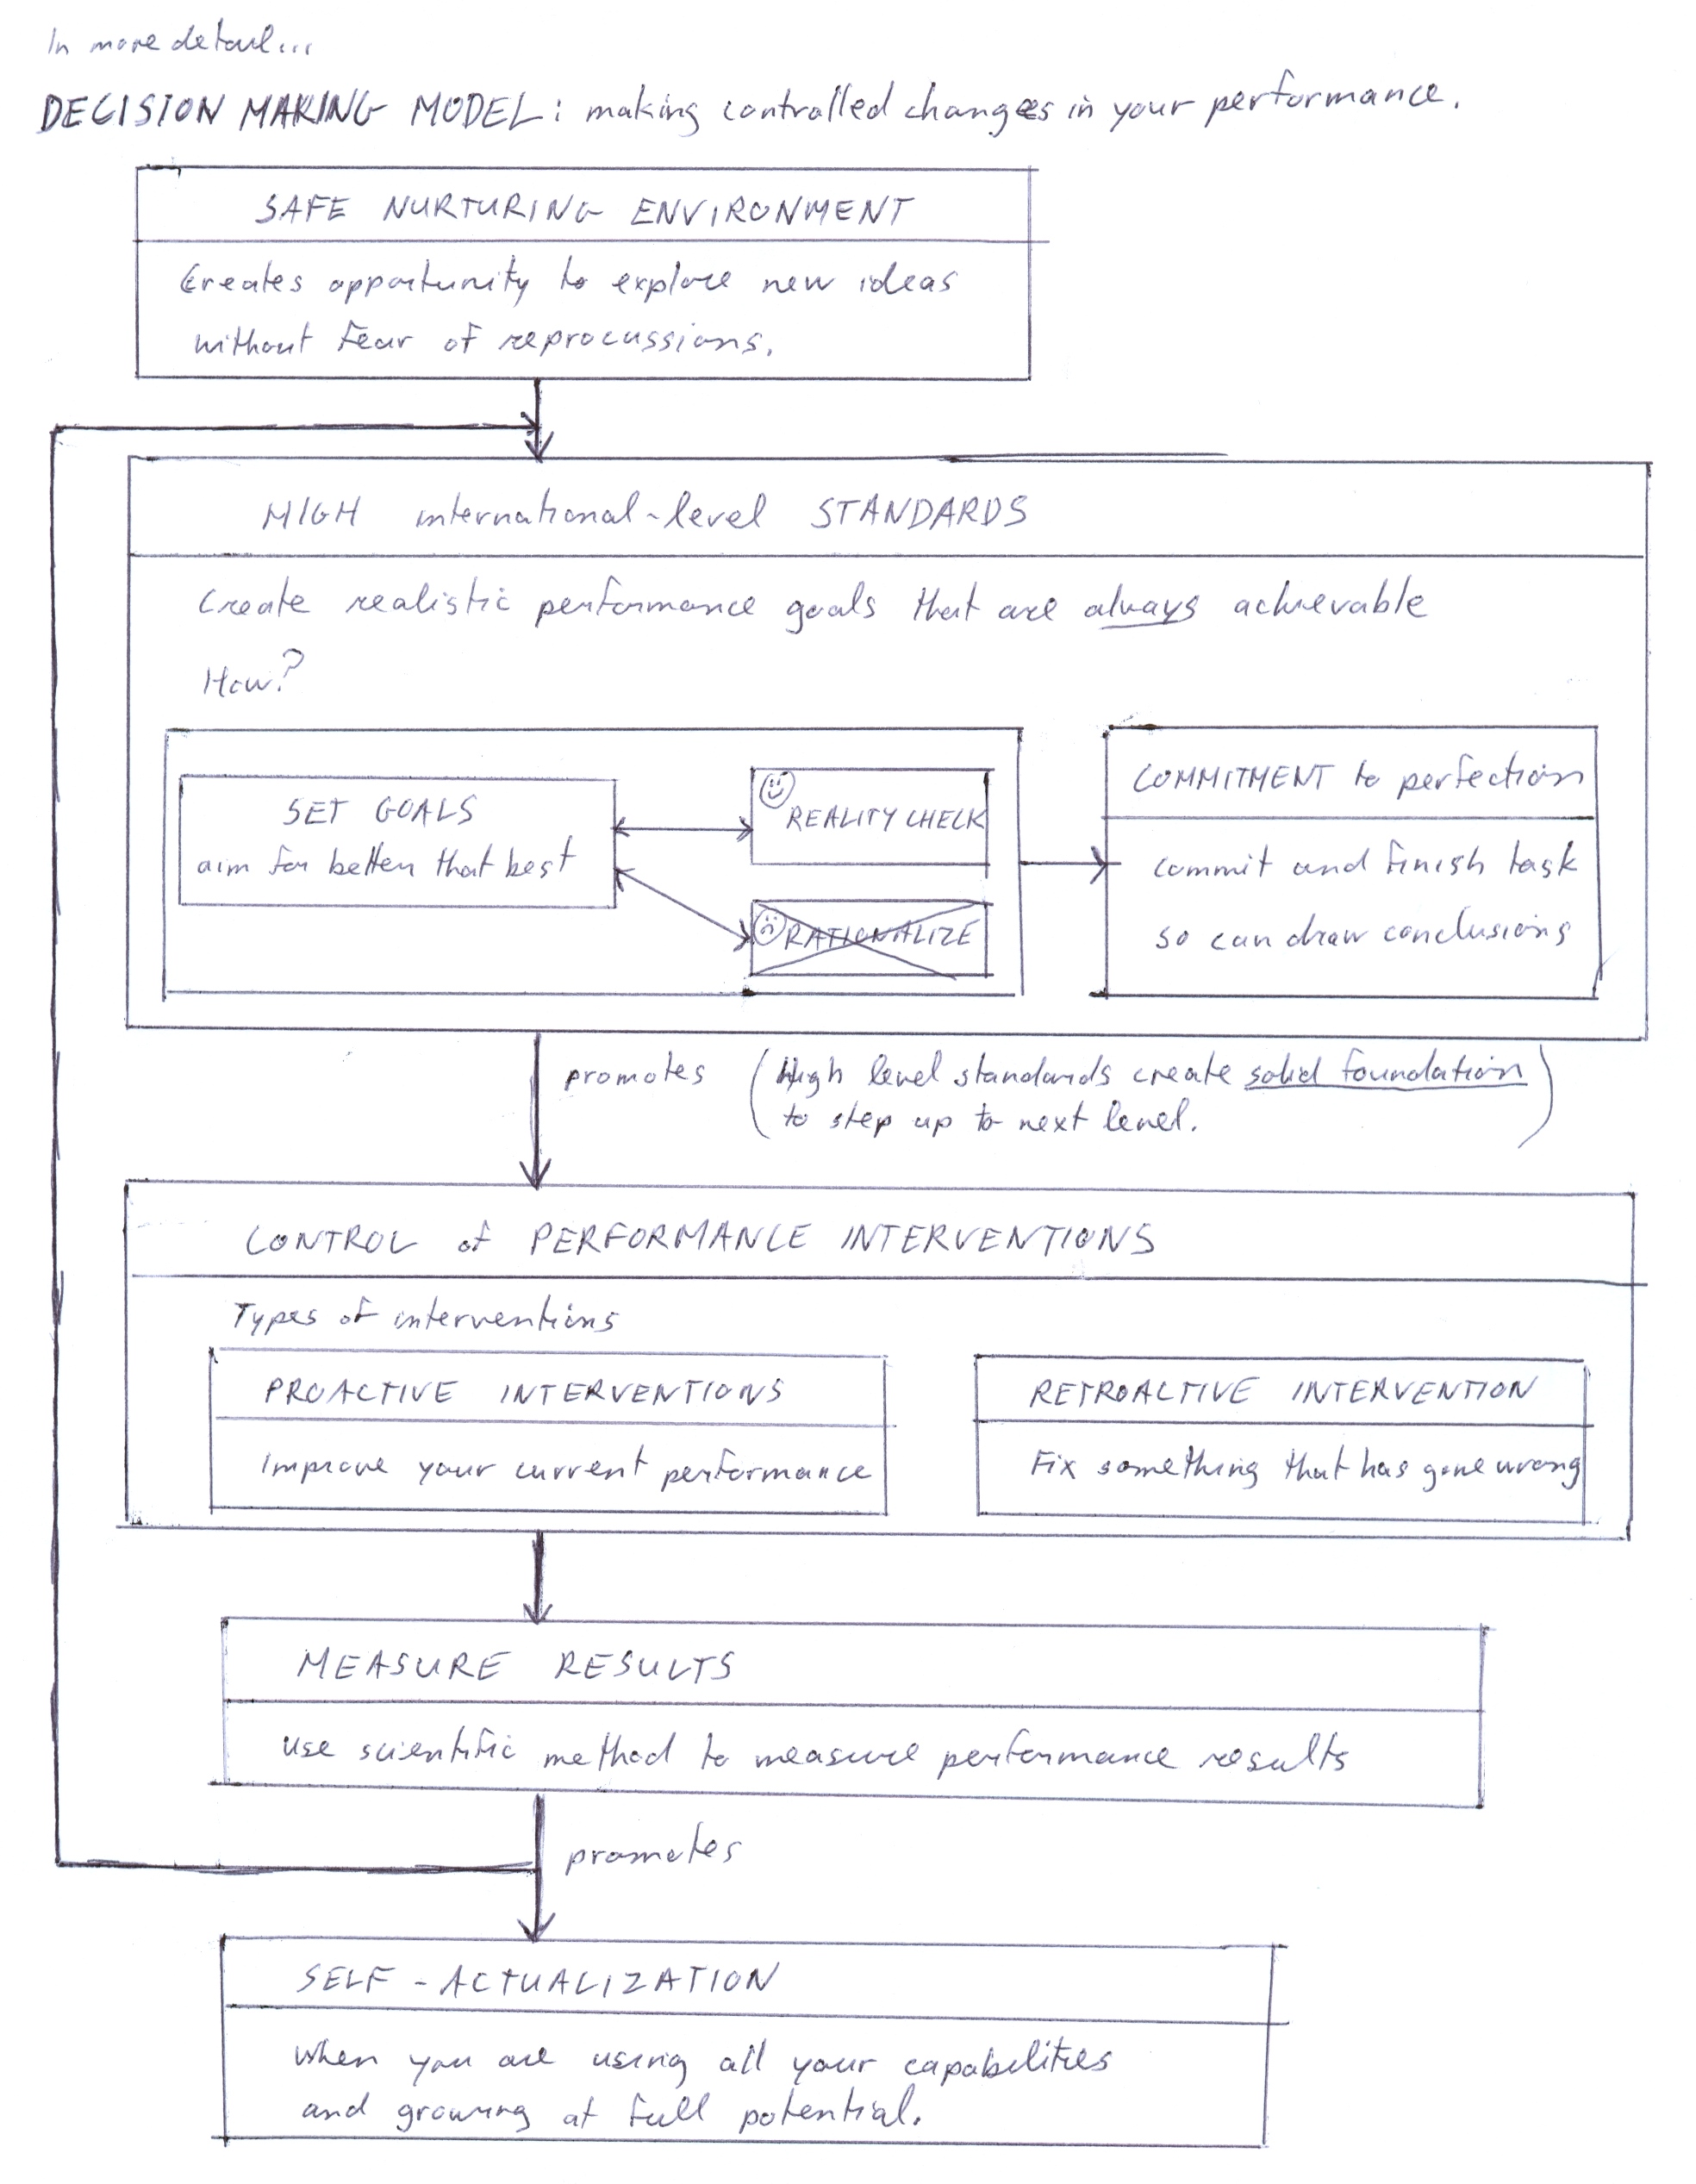 In more detail...
DECISION MAKING MODEL: making controlled changes in your performance.
SAFE NURTURING ENVIRONMENT
Creates opportunity to explore new ideas
without fear of reprocussions.
HIGH international-level STANDARDS
Create realistic performance goals that are always achievable
How?
SET GOALS
aim for better that best
REALITY CHECK
RATIONALIZE
COMMITMENT to perfection
commit and finish task
so can draw conclusions
promotes
(High level standards create solid foundation
to step up to next level.)
CONTROL of PERFORMANCE INTERVENTIONS
Types of interventions
PROACTIVE INTERVENTIONS
improve your current performance
RETROACTIVE INTERVENTION
Fix something that has gone wrong
MEASURE RESULTS
use scientific method to measure performance results
promotes
SELF-ACTUALIZATION
when you are using all your capabilities
and growing at full potential.